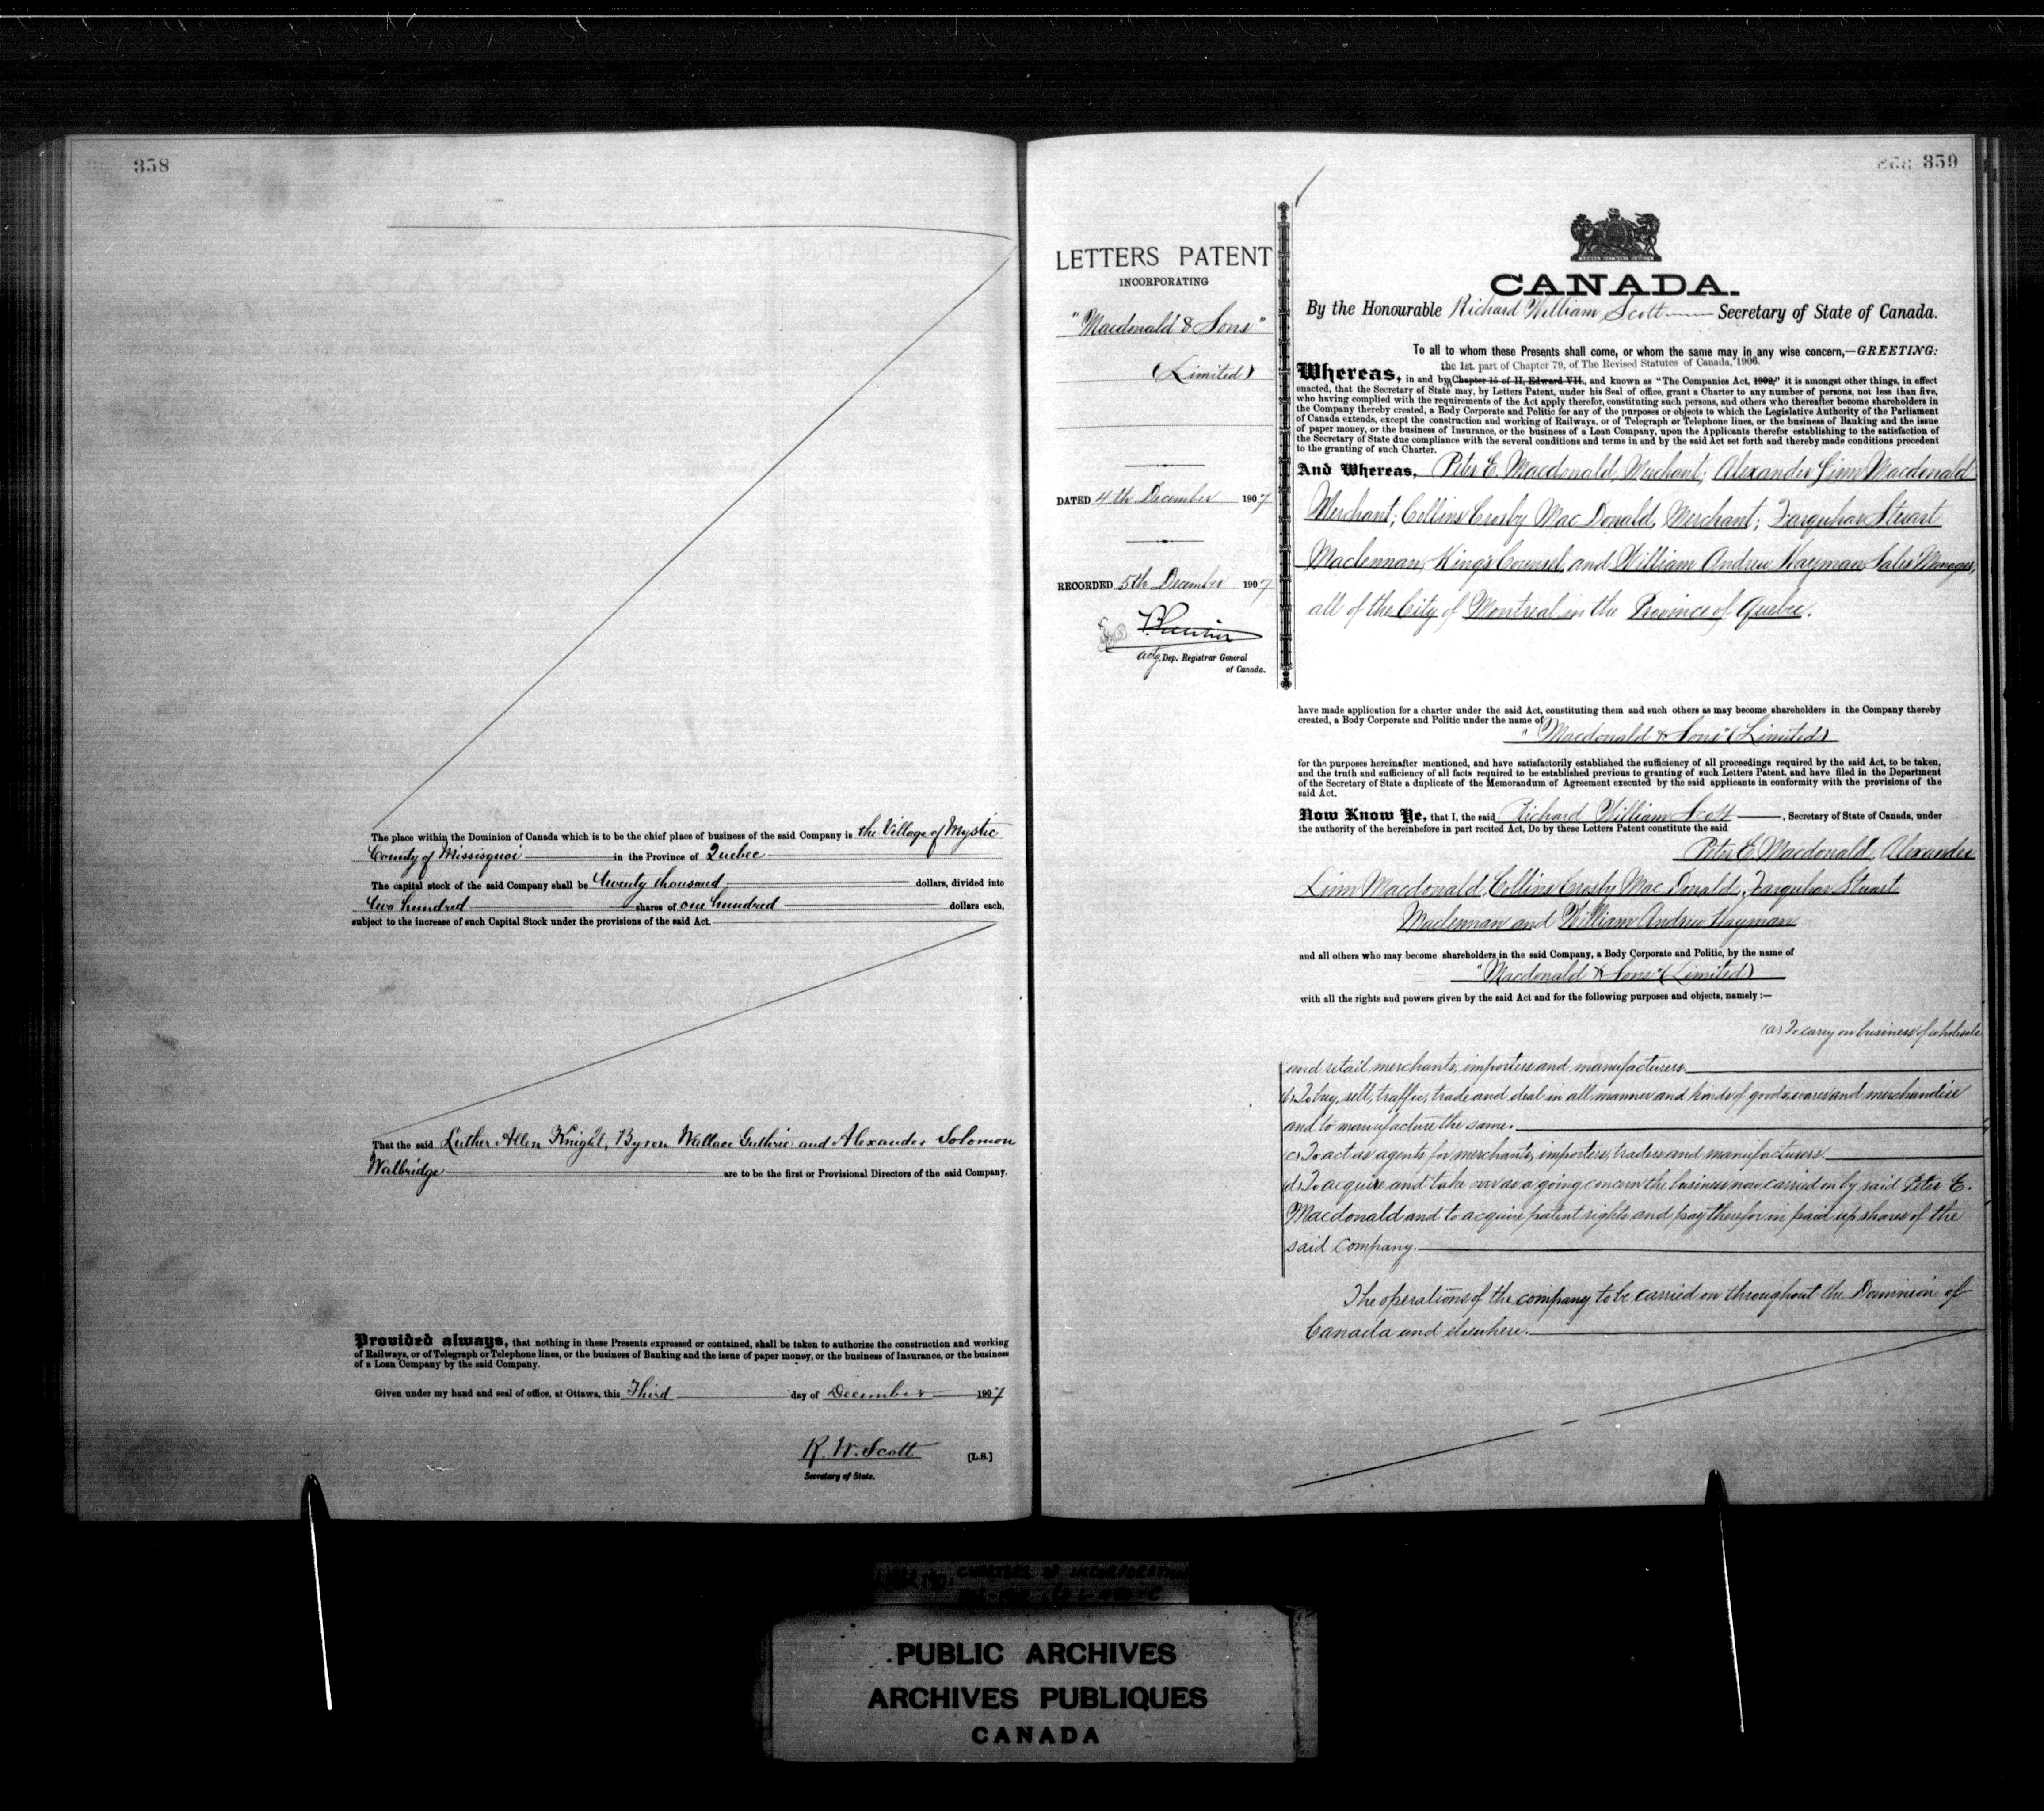 358
The place within the Dominion of Canada which is to be the chief place of business of the said Company is the Village of Mystic
County of Missisquoi in the Province of Quebec
The capital stock of the said Company shall be twenty thousand dollars, divided into
two hundred shares of one hundred dollars each,
subject to the increase of such Capital Stock under the provisions of the said Act.
That the said Luther Allen Knight, Byron Wallace Guthrie and Alexander Solomon
Walbridge are to be the first or Provisional Directors of the said Company.
Provided always, that nothing in these Presents expressed or contained, shall be taken to authorize the construction and working
of Railways, or of Telegraph or Telephone lines, or the business of Banking and the issue of paper money, or the business of Insurance, or the business
of a Loan Company by the said Company.
Given under my hand and seal of office, at Ottawa, this Third day of December 1907
R. W. Scott [L.S.]
Secretary of State.
359
LETTERS PATENT
INCORPORATING
"Macdonald & Sons"
(Limited)
DATED 4th December 1907
RECORDED 5th December 1907
actg Dep. Registrar General
of Canada.
CANADA.
By the Honourable Richard William Scott Secretary of State of Canada.
To all to whom these Presents shall come, or whom the same may in any wise concern,—GREETING:
the 1st. part of Chapter 79, of The Revised Statutes of Canada, 1906.
Whereas, in and by Chapter 15 of II, Edward VII., and known as "The Companies Act, 1902," it is amongst other things, in effect
enacted, that the Secretary of State may, by Letters Patent, under his Seal of office, grant a Charter to any number of persons, not less than five,
who having complied with the requirements of the Act apply therefor, constituting such persons, and others who thereafter become shareholders in
the Company thereby created, a Body Corporate and Politic for any of the purposes or objects to which the Legislative Authority of the Parliament
of Canada extends, except the construction and working of Railways, or of Telegraph or Telephone lines, or the business of Banking and the issue
of paper money, or the business of Insurance, or the business of a Loan Company, upon the Applicants therefor establishing to the satisfaction of
the Secretary of State due compliance with the several conditions and terms in and by the said Act set forth and thereby made conditions precedent
to the granting of such Charter.
And Whereas, Peter E. Macdonald, Merchant; Alexander Linn Macdonald
Merchant; Collins Crosby MacDonald, Merchant; Farquhar Stuart
Maclennan, King's Counsel, and William Andrew Hayman, Sales Manager,
all of the City of Montreal in the Province of Quebec.
have made application for a charter under the said Act, constituting them and such others as may become shareholders in the Company thereby
created, a Body Corporate and Politic under the name of
"Macdonald & Sons" (Limited)
for the purposes hereinafter mentioned, and have satisfactorily established the sufficiency of all proceedings required by the said Act, to be taken,
and the truth and sufficiency of all facts required to be established previous to granting of such Letters Patent, and have filed in the Department
of the Secretary of State a duplicate of the Memorandum of Agreement executed by the said applicants in conformity with the provisions of the
said Act.
Now Know Ye, that I, the said Richard William Scott, Secretary of State of Canada, under
the authority of the hereinbefore in part recited Act, Do by these Letters Patent constitute the said
Peter E. Macdonald, Alexander
Linn Macdonald, Collins Crosby MacDonald, Farquhar Stuart
Maclennan and William Andrew Hayman
and all others who may become shareholders in the said Company, a Body Corporate and Politic, by the name of
"Macdonald & Sons" (Limited)
with all the rights and powers given by the said Act and for the following purposes and objects, namely :—
(a) To carry on business of wholesale
and retail merchants, importers and manufacturers.
(b) To buy, sell, traffic, trade and deal in all manner and kinds of goods, wares and merchandise
and to manufacture the same.
(c) To act as agents for merchants, importers, traders and manufacturers.
(d) To acquire and take over as a going concern the business now carried on by said Peter E.
Macdonald and to acquire patent rights and pay therefor in paid up shares of the
said Company.
The operations of the company to be carried on throughout the Dominion of
Canada and elsewhere.
CHARTERS OF INCORPORATION
PUBLIC ARCHIVES
ARCHIVES PUBLIQUES
CANADA